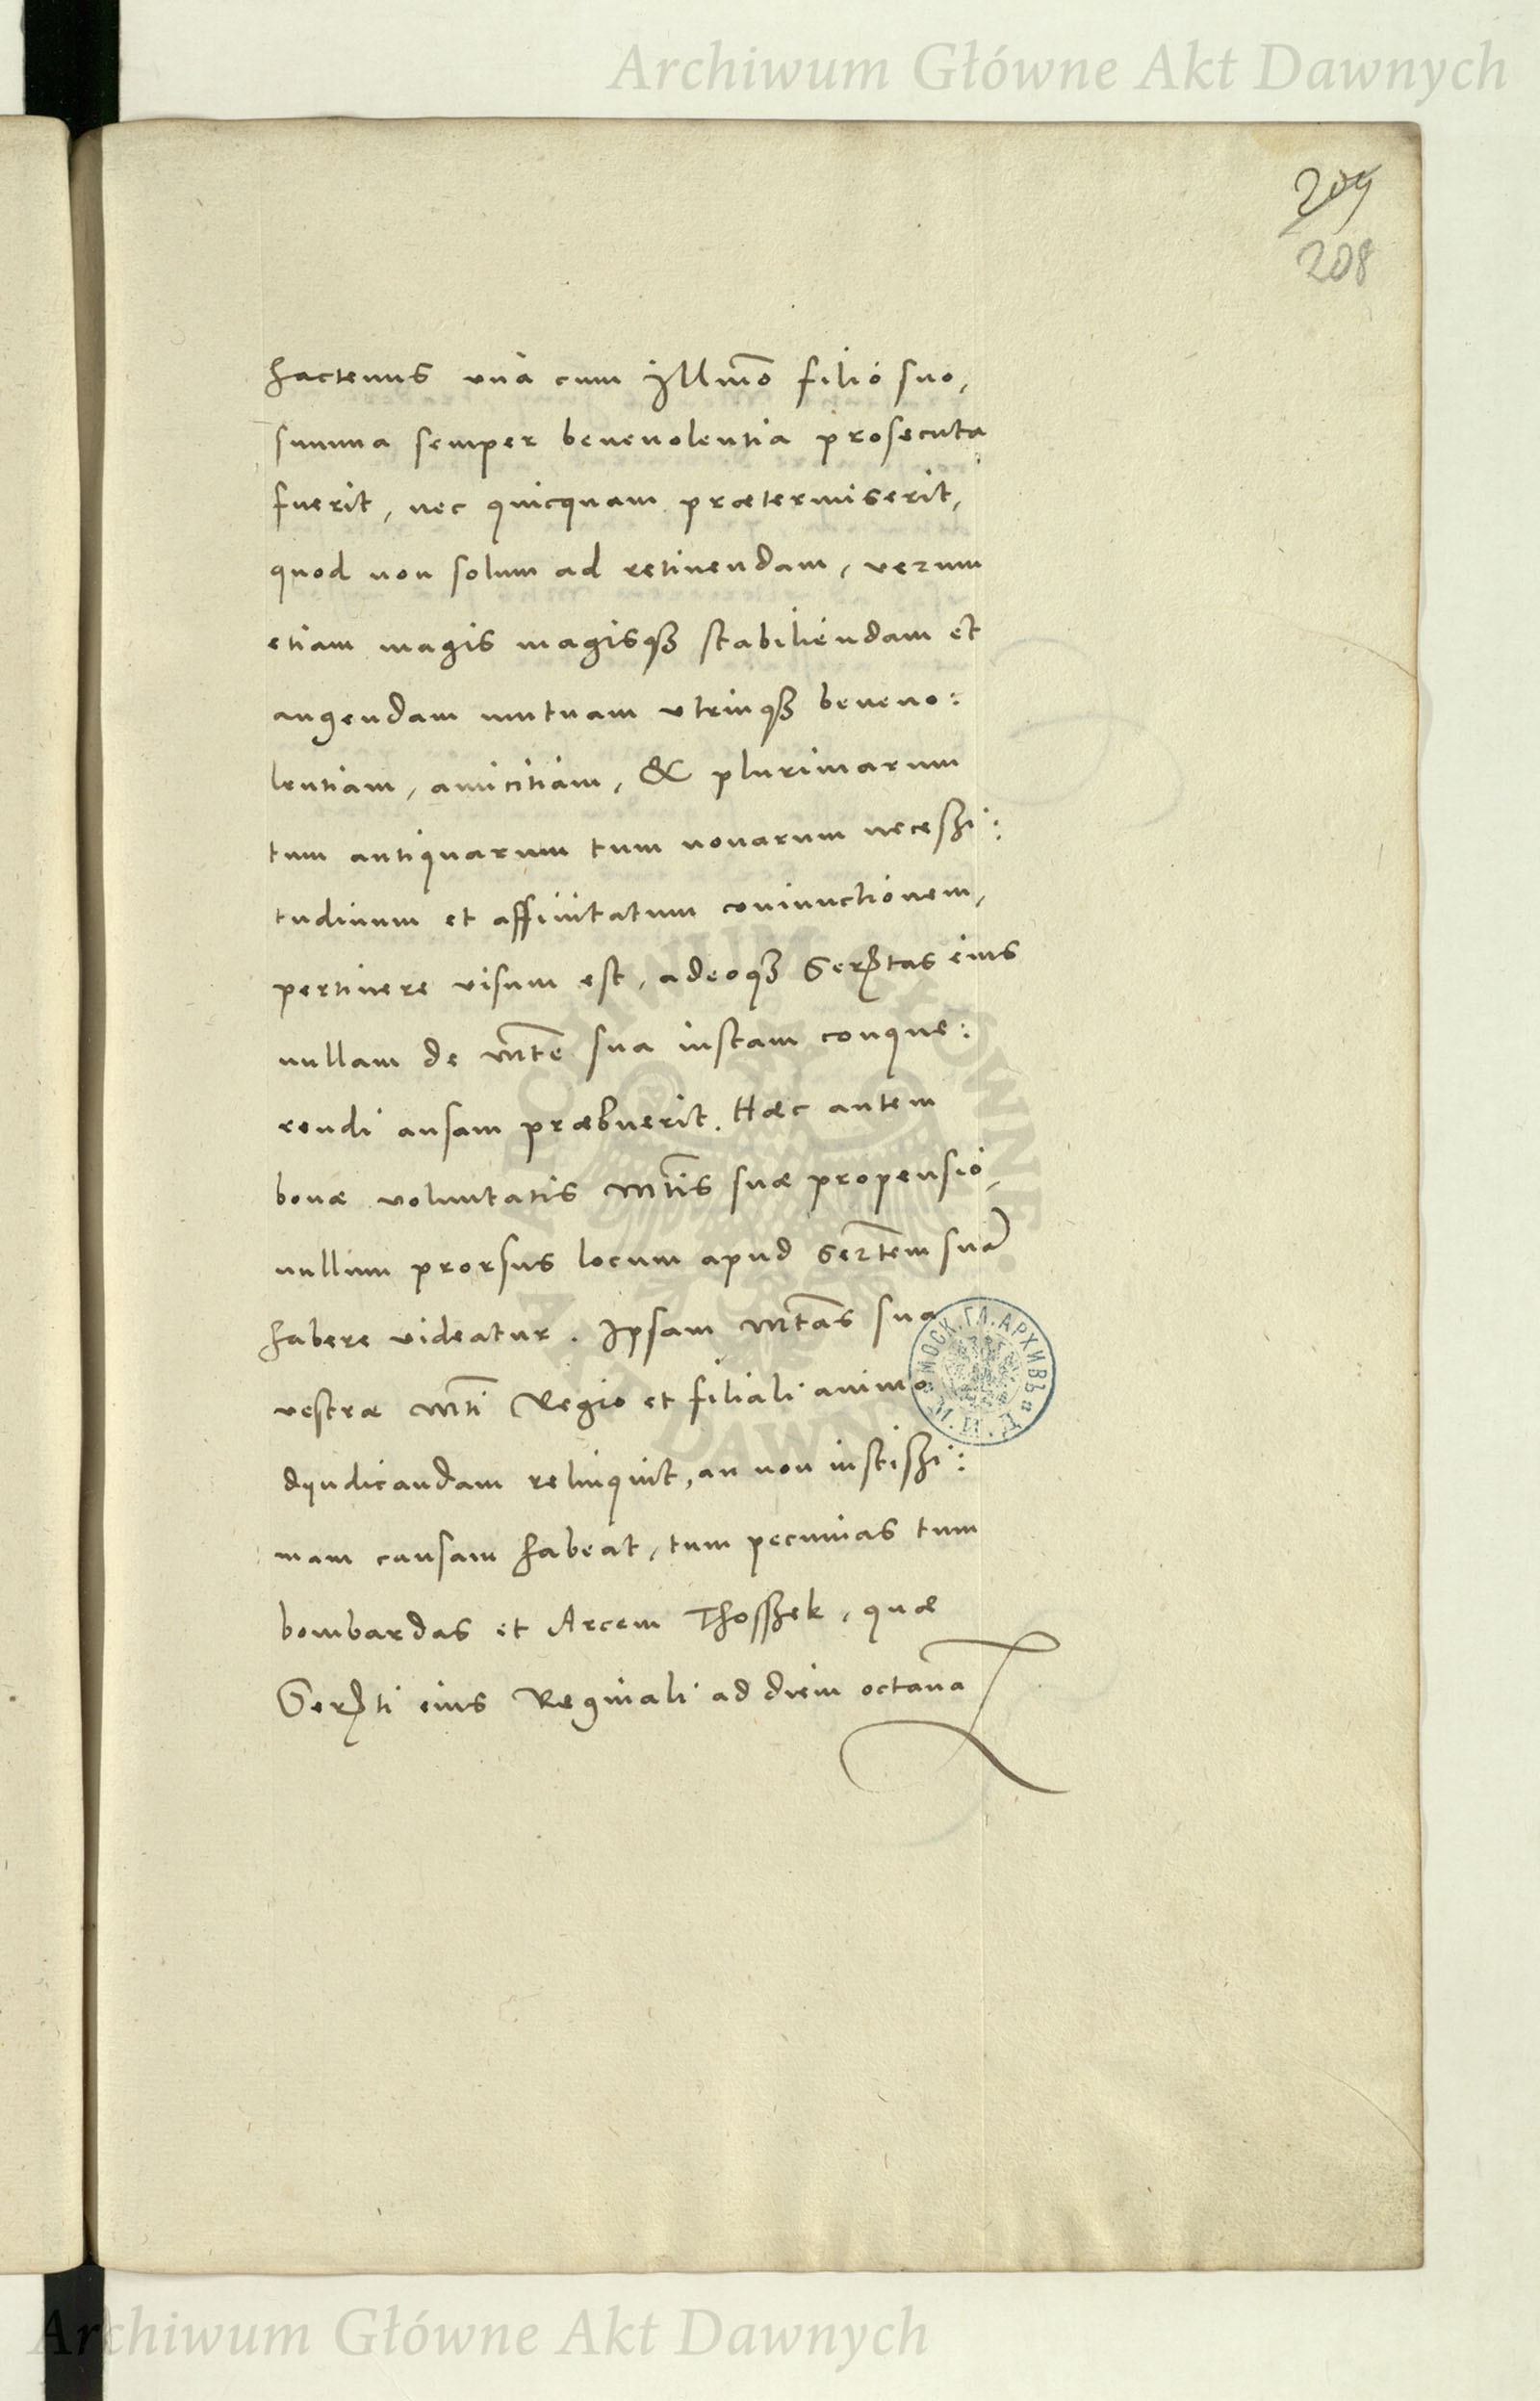 Archiwum Główne Akt Dawnych
209
208
hactenus una cum Illmo filio suo,
summa semper beneuolentia prosecuta
fuerit, nec quicquam prætermiserit,
quod non solum ad retinendam, verum
etiam magis magisqȝ stabiliendam et
augendam mutuam utrinqȝ beneuo:
lentiam, amicitiam, & plurimarum
tum antiquarum tum nouarum necessi:
tudinum et affinitatum coniunctionem,
pertinere visum est, adeoqȝ Serrtas eius
nullam de Mte sua iustam conque:
rendi ansam præbuerit. Hæc autem
bonæ voluntatis Mtis suæ propensio,
nullum prorsus locum apud Sertem suā
habere videatur. Ipsam Mtas sua
vestræ Mti Regio et filiali animo
dijudicandam relinquit, an non iustissi:
mam causam habeat, tum pecunias tum
bombardas et Arcem Thosszek, quæ
Serrti eius Reginali ad diem octauā
МОСК. ГЛ. АРХИВЪ
ARCHIWUM GŁÓWNE AKT DAWNYCH
Archiwum Główne Akt Dawnych